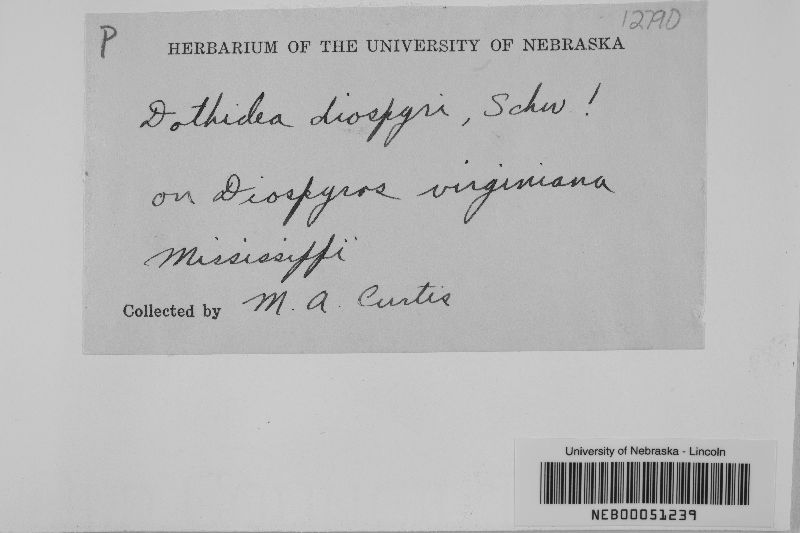 P
12790
HERBARIUM OF THE UNIVERSITY OF NEBRASKA
Dothidea diospyri, Schw!
on Diospyros virginiana
Mississippi
Collected by M. A. Curtis
University of Nebraska - Lincoln
NEB00051239